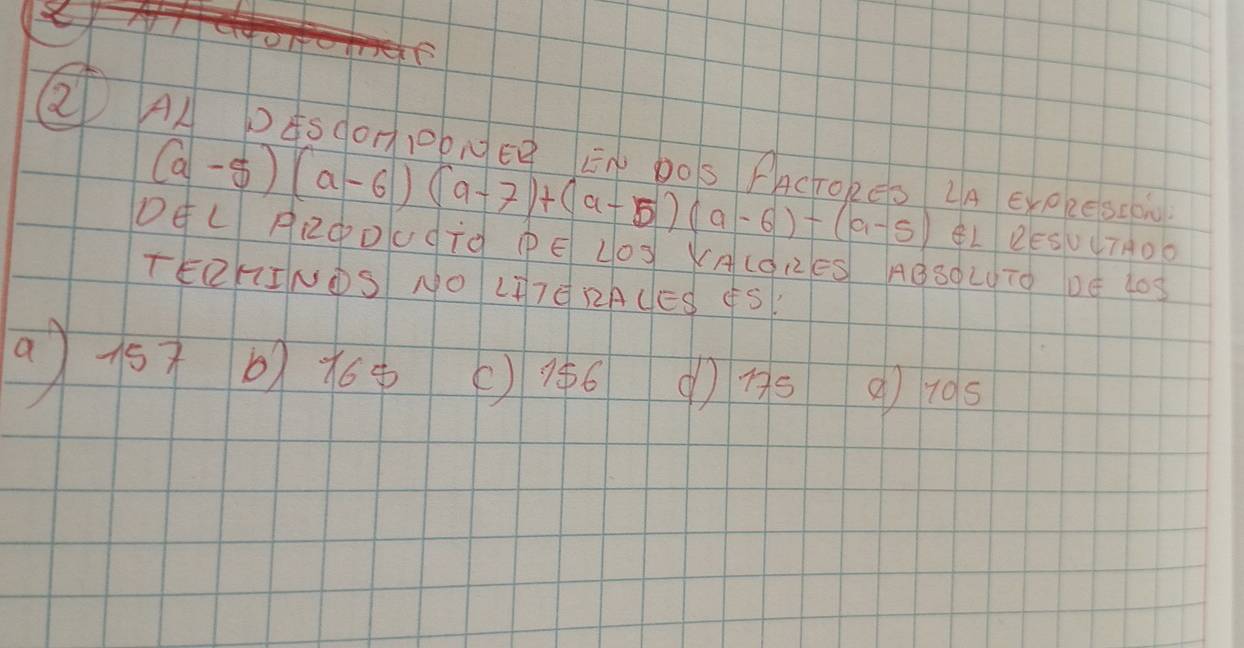 ② AL DESCOMPONER EN DOS FACTORES LA EXPRESIÓN:
(a-5)(a-6)(a-7)+(a-5)(a-6)-(a-5) EL RESULTADO
DEL PRODUCTO DE LOS VALORES ABSOLUTO DE LOS
TERMINOS NO LITERALES ES:
a) 157 b) 165 c) 156 d) 175 e) 195